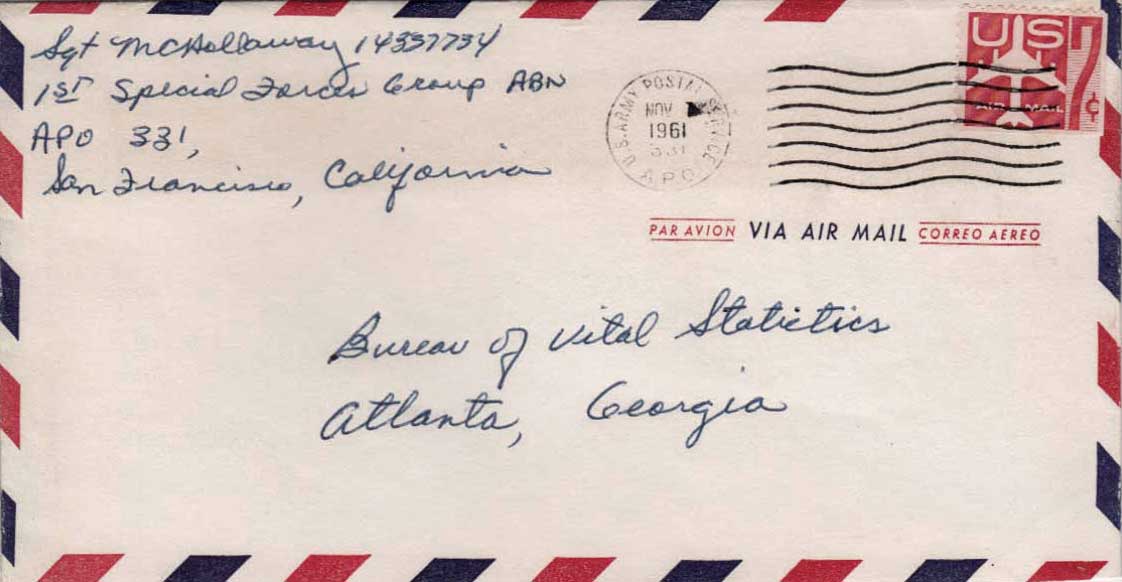 Sgt McHollaway 14337734
1ST Special Forces Group ABN
APO 331,
San Francisco, California
U.S. ARMY POSTAL SERVICE
NOV
1961
331
APO
US
AIR MAIL
7¢
PAR AVION VIA AIR MAIL CORREO AEREO
Bureau of Vital Statictics
Atlanta, Georgia